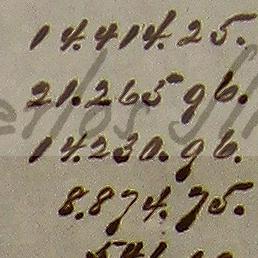 14.414.25.
21.265.96.
14.230.96.
8.874.75.